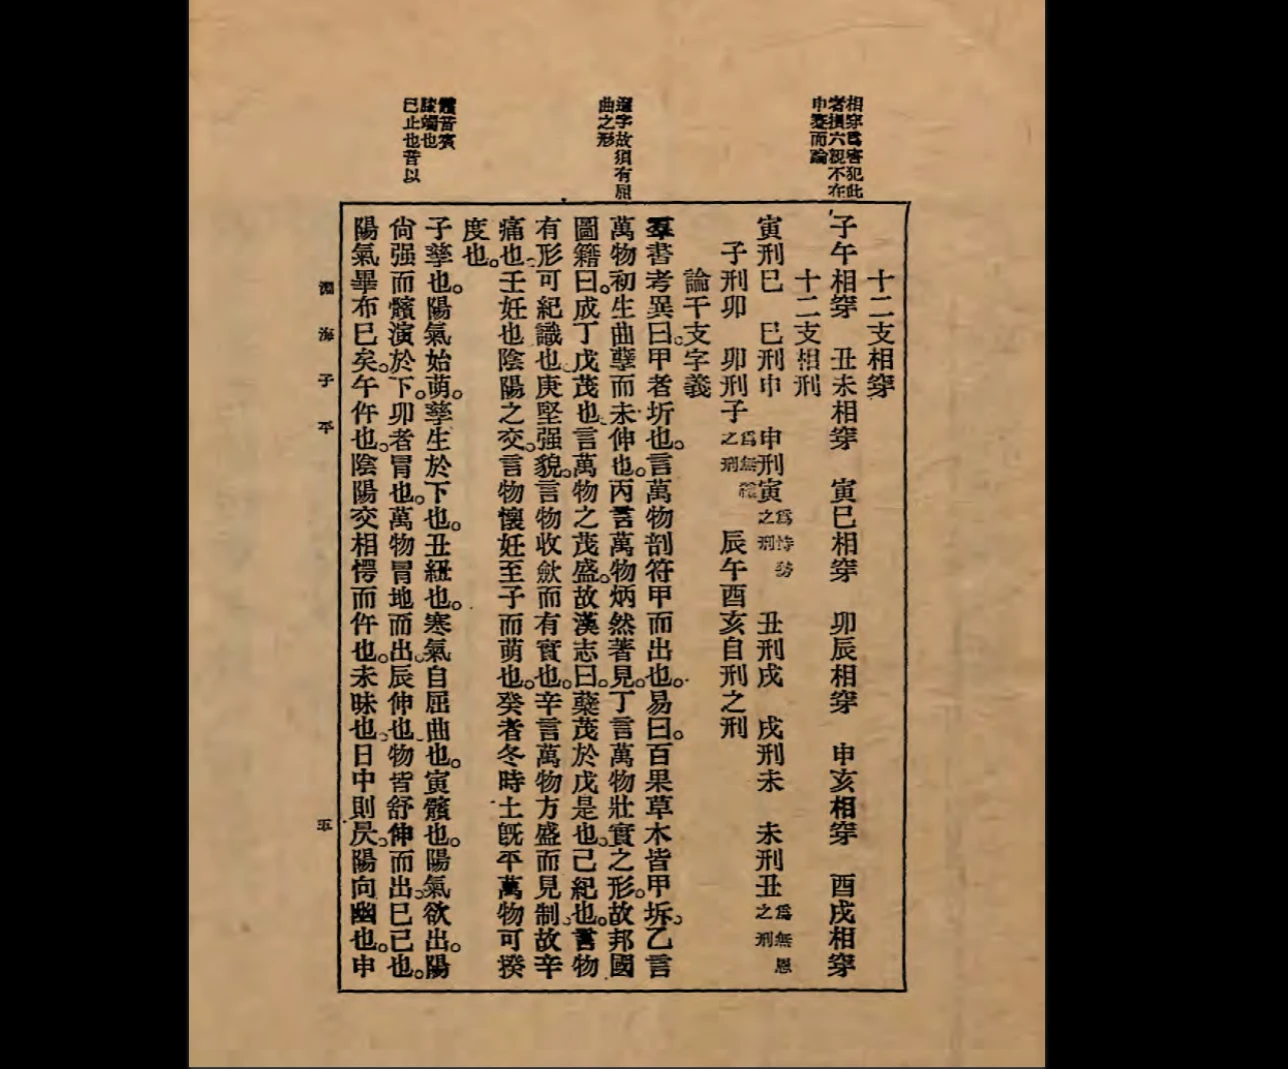 相穿爲害犯此
者損六親不在
中蹇而論
選字故須有屈
曲之形
髕音賓
膝端也
巳止也昔以
十二支相穿
子午相穿　丑未相穿　寅巳相穿　卯辰相穿　申亥相穿　酉戌相穿
十二支相刑
寅刑巳　巳刑申　申刑寅爲恃勢之刑　丑刑戌　戌刑未　未刑丑爲無恩之刑
子刑卯　卯刑子爲無禮之刑　辰午酉亥自刑之刑
論干支字義
羣書考異曰。甲者圻也。言萬物剖符甲而出也。易曰。百果草木皆甲坼。乙言
萬物初生曲孽而未伸也。丙言萬物炳然著見。丁言萬物壯實之形。故邦國
圖籍曰。成丁戊茂也。言萬物之茂盛。故漢志曰。蘖茂於戊是也。己紀也。言物
有形可紀識也。庚堅强貌。言物收斂而有實也。辛言萬物方盛而見制。故辛
痛也。壬妊也陰陽之交。言物懷妊至子而萌也。癸者冬時土旣平萬物可揆
度也。
子孳也。陽氣始萌。孳生於下也。丑紐也。寒氣自屈曲也。寅髕也。陽氣欲出。陽
尙强而髕演於下。卯者冒也。萬物冒地而出。辰伸也。物皆舒伸而出。巳已也。
陽氣畢布巳矣。午仵也。陰陽交相愕而仵也。未昧也。日中則昃。陽向幽也。申
淵海子平
平